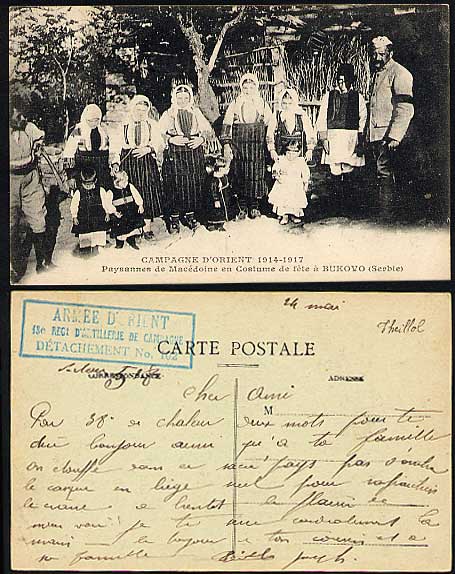 CAMPAGNE D'ORIENT 1914-1917
Paysannes de Macédoine en Costume de fête à BUKOVO (Serbie)
24 mai
Theillol
ARMÉE D'ORIENT
RÉGt D'ARTILLERIE DE CAMPAGNE
DÉTACHEMENT No. 102
CARTE POSTALE
CORRESPONDANCE
ADRESSE
Cher Ami
M
Par 38° de chaleur deux mots pour te
dire bonjour ainsi qu'à ta famille
on étouffe dans ce sacré pays pas d'ombre
le casque en liège
le crane à bientôt le plaisir de
je te serre cordialement la
main le bonjour à ton cousin et à
sa famille